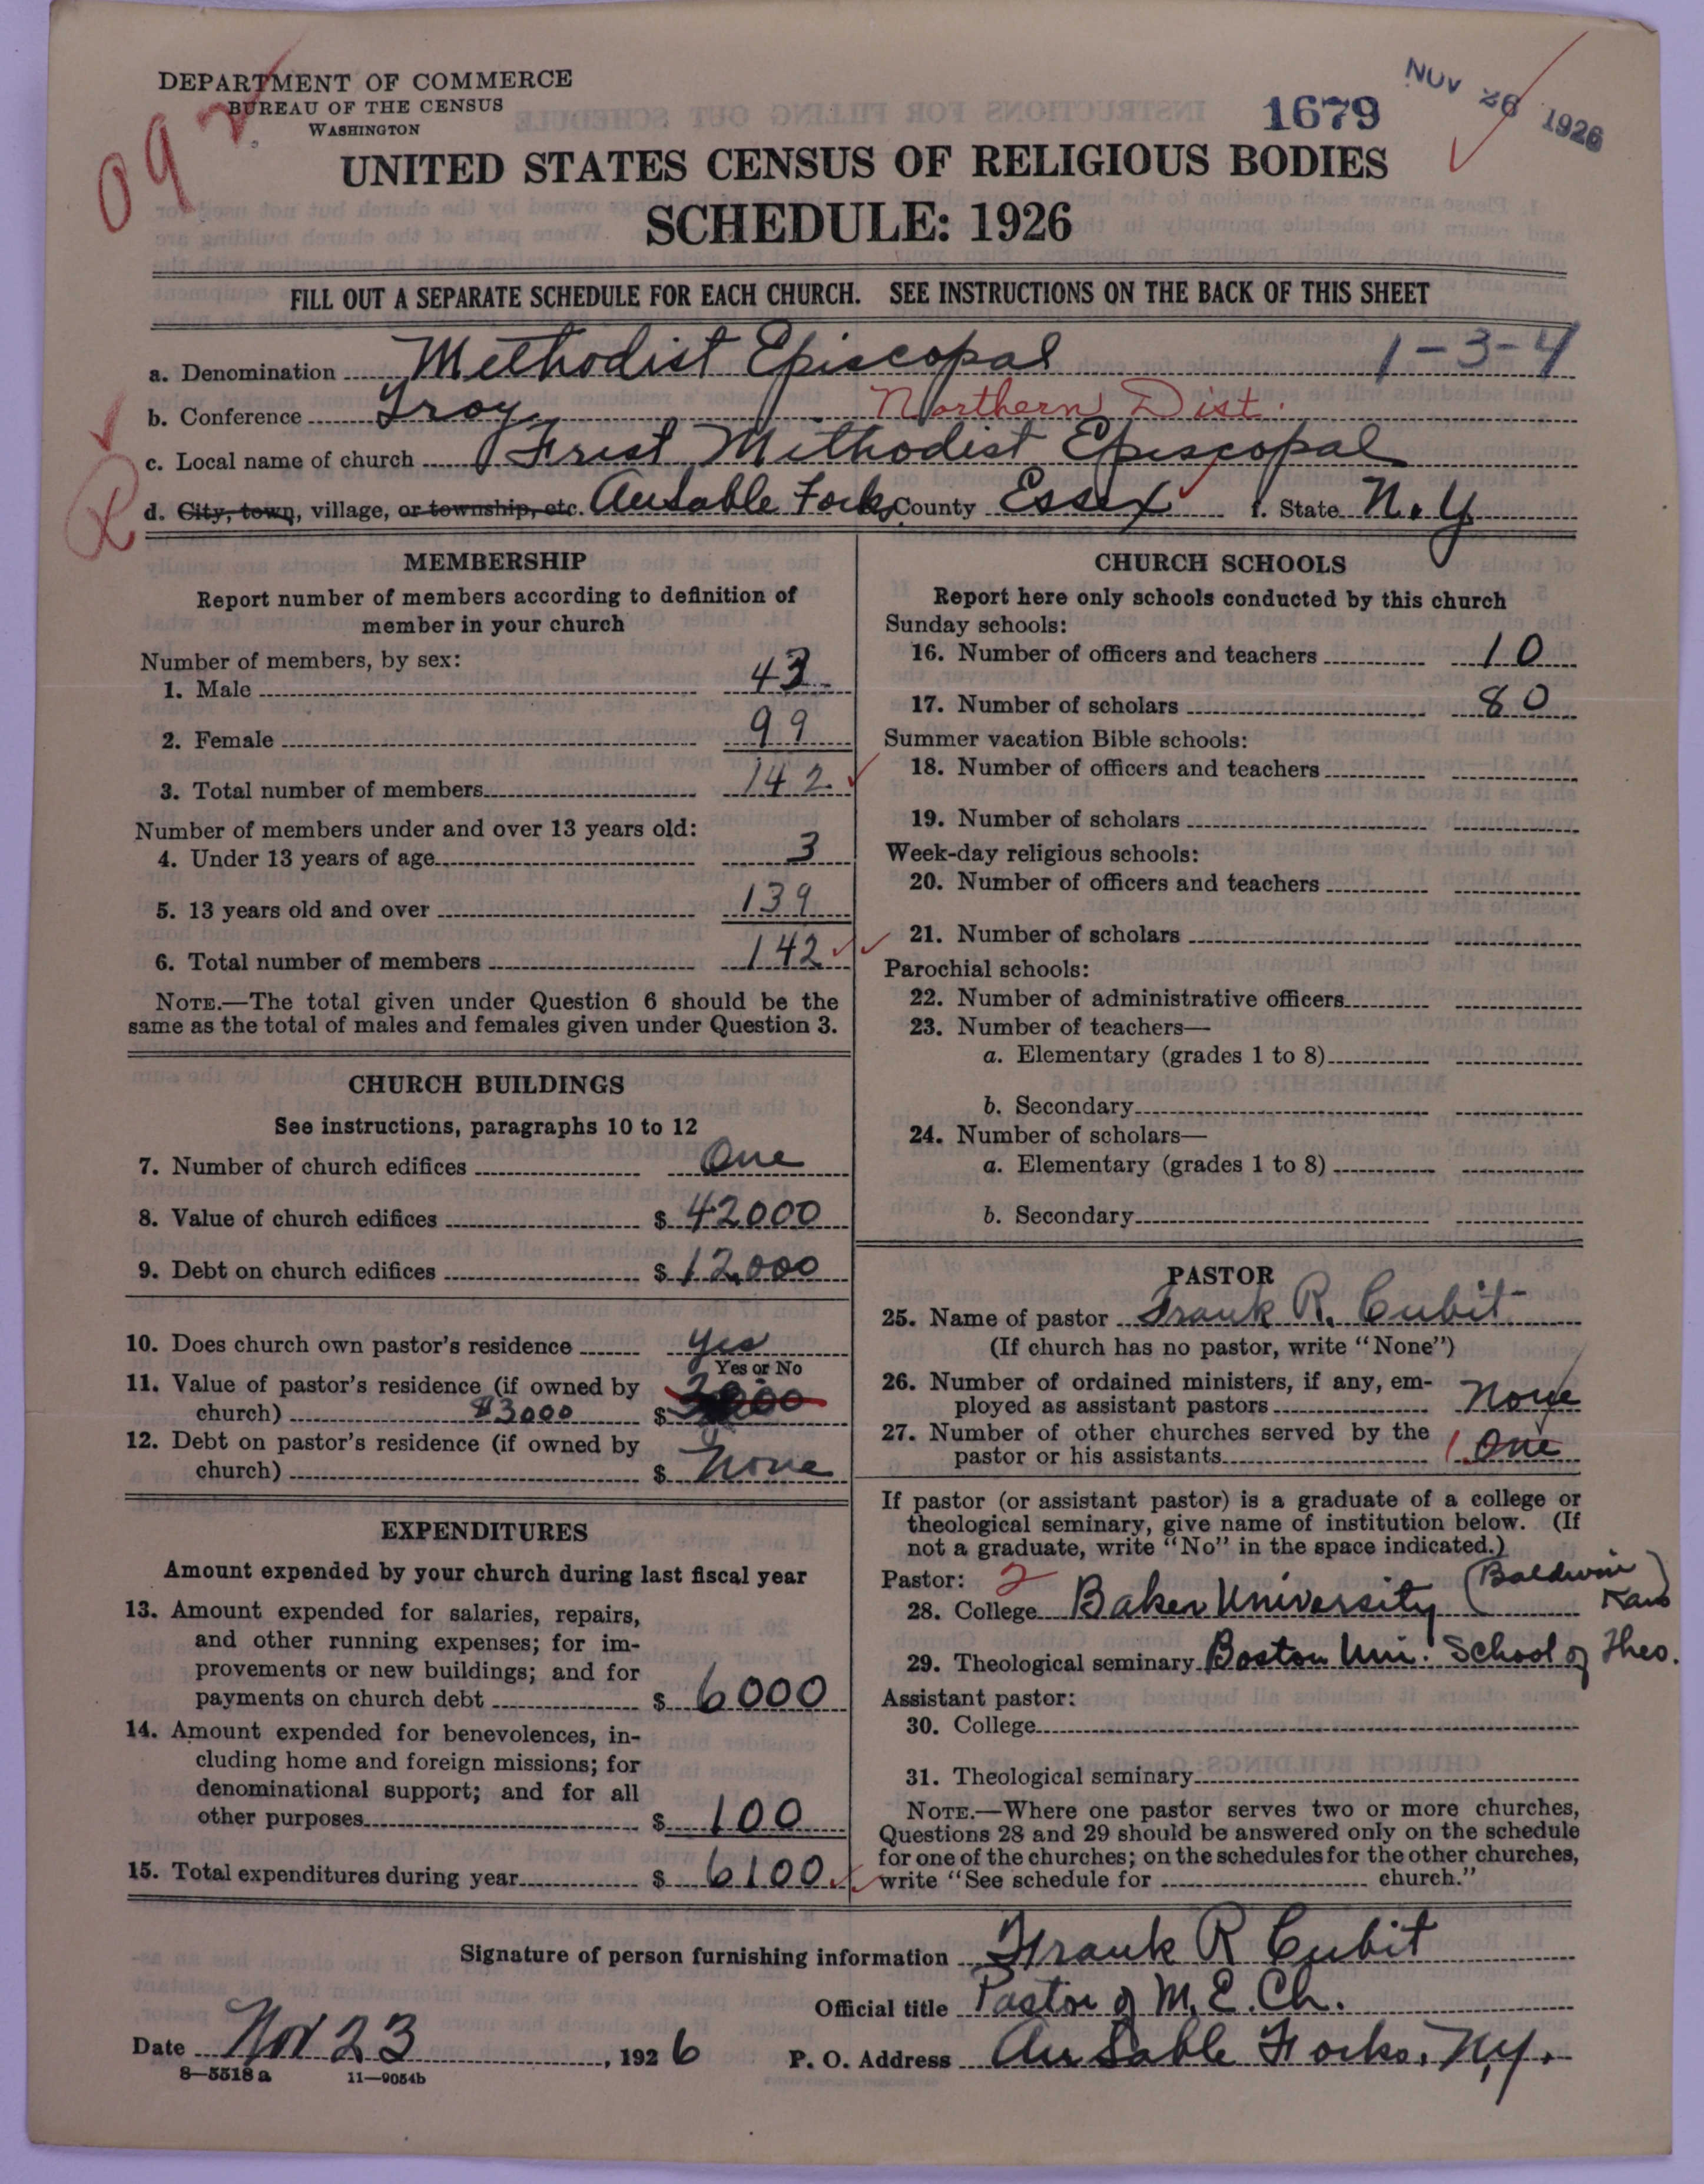 DEPARTMENT OF COMMERCE
BUREAU OF THE CENSUS
WASHINGTON
092
1679
NOV 26 1926
UNITED STATES CENSUS OF RELIGIOUS BODIES
SCHEDULE: 1926
FILL OUT A SEPARATE SCHEDULE FOR EACH CHURCH. SEE INSTRUCTIONS ON THE BACK OF THIS SHEET
a. Denomination Methodist Episcopal 1-3-4
b. Conference Troy Northern Dist.
c. Local name of church First Methodist Episcopal
d. City, town, village, or township, etc. AuSable Forks County Essex f. State N.Y.
R
MEMBERSHIP
Report number of members according to definition of
member in your church
Number of members, by sex:
1. Male 43
2. Female 99
3. Total number of members 142
Number of members under and over 13 years old:
4. Under 13 years of age 3
5. 13 years old and over 139
6. Total number of members 142
NOTE.—The total given under Question 6 should be the
same as the total of males and females given under Question 3.
CHURCH BUILDINGS
See instructions, paragraphs 10 to 12
7. Number of church edifices One
8. Value of church edifices $ 42000
9. Debt on church edifices $ 12,000
10. Does church own pastor's residence yes
Yes or No
11. Value of pastor's residence (if owned by
church) $3000 $
12. Debt on pastor's residence (if owned by
church) $ None
EXPENDITURES
Amount expended by your church during last fiscal year
13. Amount expended for salaries, repairs,
and other running expenses; for im-
provements or new buildings; and for
payments on church debt $ 6000
14. Amount expended for benevolences, in-
cluding home and foreign missions; for
denominational support; and for all
other purposes $ 100
15. Total expenditures during year $ 6100
CHURCH SCHOOLS
Report here only schools conducted by this church
Sunday schools:
16. Number of officers and teachers 10
17. Number of scholars 80
Summer vacation Bible schools:
18. Number of officers and teachers
19. Number of scholars
Week-day religious schools:
20. Number of officers and teachers
21. Number of scholars
Parochial schools:
22. Number of administrative officers
23. Number of teachers—
a. Elementary (grades 1 to 8)
b. Secondary
24. Number of scholars—
a. Elementary (grades 1 to 8)
b. Secondary
PASTOR
25. Name of pastor Frank R. Cubit
(If church has no pastor, write "None")
26. Number of ordained ministers, if any, em-
ployed as assistant pastors None
27. Number of other churches served by the
pastor or his assistants 1 One
If pastor (or assistant pastor) is a graduate of a college or
theological seminary, give name of institution below. (If
not a graduate, write "No" in the space indicated.)
Pastor: 2
28. College Baker University (Baldwin Kans)
29. Theological seminary Boston Uni. School of Theo.
Assistant pastor:
30. College
31. Theological seminary
NOTE.—Where one pastor serves two or more churches,
Questions 28 and 29 should be answered only on the schedule
for one of the churches; on the schedules for the other churches,
write "See schedule for church."
Signature of person furnishing information Frank R Cubit
Official title Pastor of M.E. Ch.
Date Nov 23, 1926 P. O. Address Au Sable Forks, N.Y.
8—5518a 11—9054b